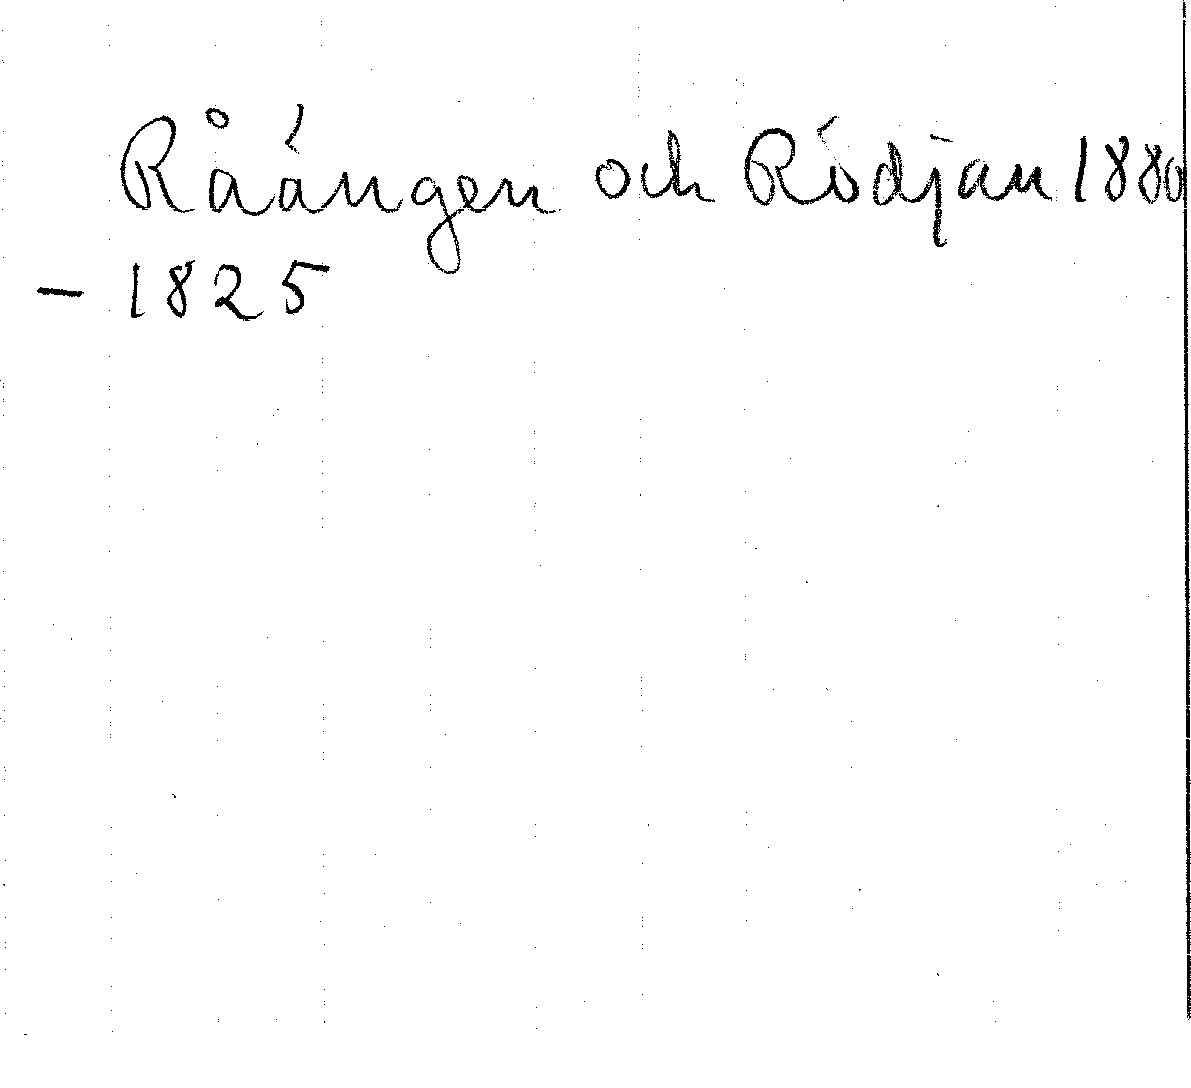 Råängen och Rödjan 1880
- 1825